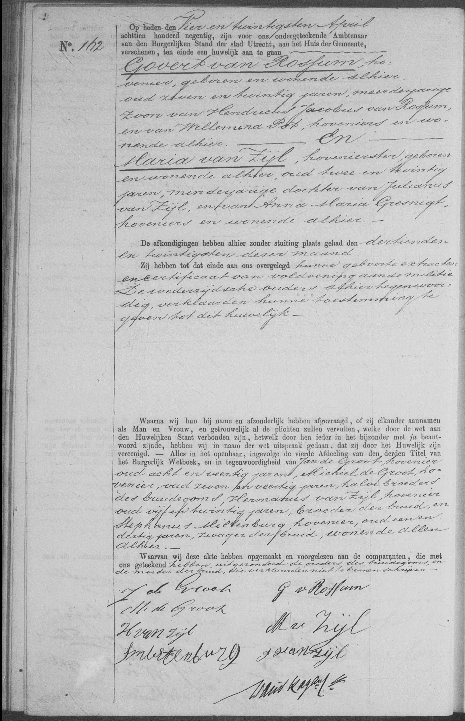 2
Op heden den Vier en twintigsten April
achttien honderd negentig, zijn voor ons ondergeteekende Ambtenaar
van den Burgerlijken Stand der stad Utrecht, aan het Huis der Gemeente,
verschenen, ten einde een huwelijk aan te gaan
N°. 162
Govert van Rossum, ho-
venier, geboren en wonende alhier
oud zeven en twintig jaren, meerderjarige
zoon van Hendricus Jacobus van Rossum,
en van Willemina Pot, hoveniers en wo-
nende alhier. En
Maria van Zijl, hovenierster, geboren
en wonende alhier, oud twee en twintig
jaren, minderjarige dochter van Julianus
van Zijl, en van Anna Maria Gresnigt,
hoveniers en wonende alhier
De afkondigingen hebben alhier zonder stuiting plaats gehad den dertienden
en twintigsten dezer maand
Zij hebben tot dat einde aan ons overgelegd hunne geboorte extracten
en certificaat van voldoening aan de militie
De wederzijdsche ouders alhier tegenwoor-
dig, verklaarden hunne toestemming te
geven tot dit huwelijk
Waarna wij hun bij naam en afzonderlijk hebben afgevraagd, of zij elkander aannemen
als Man en Vrouw, en getrouwelijk al de plichten zullen vervullen, welke door de wet aan
den Huwelijken Staat verbonden zijn, hetwelk door hen ieder in het bijzonder met ja beant-
woord zijnde, hebben wij in naam der wet uitspraak gedaan, dat zij door het Huwelijk zijn
vereenigd. — Alles in het openbaar, ingevolge de vierde Afdeeling van den derden Titel van
het Burgerlijk Wetboek, en in tegenwoordigheid van Jan de Groot, hovenier
oud acht en veertig jaren, Michiel de Groot, ho-
venier, oud zeven en veertig jaren, halve broeders
des bruidegoms, Hermanus van Zijl, hovenier
oud vijf en twintig jaren, broeder der bruid, en
Stephanus Miltenburg, hovenier, oud een en
dertig jaren, zwager der bruid, wonende allen
alhier.
Waarvan wij deze akte hebben opgemaakt en voorgelezen aan de comparanten, die met
ons geteekend hebben, uitgezonderd de ouders des bruidegoms, en
de moeder der bruid, die verklaarden niet te kunnen schrijven
J de Groot
G v Rossum
M de Groot
M v Zijl
H van Zijl
J van Zijl